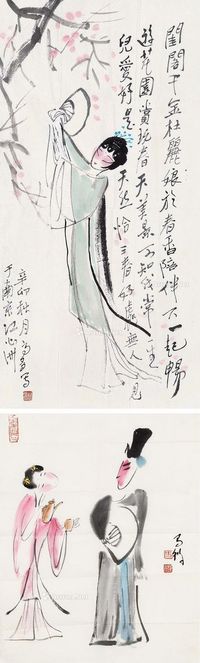 閨閣千金杜麗娘於春香陪伴下一起暢
遊花園賞玩春天美景可知我常一生
兒愛好是天然恰三春好處無人見
辛卯秋月
于南京江心洲